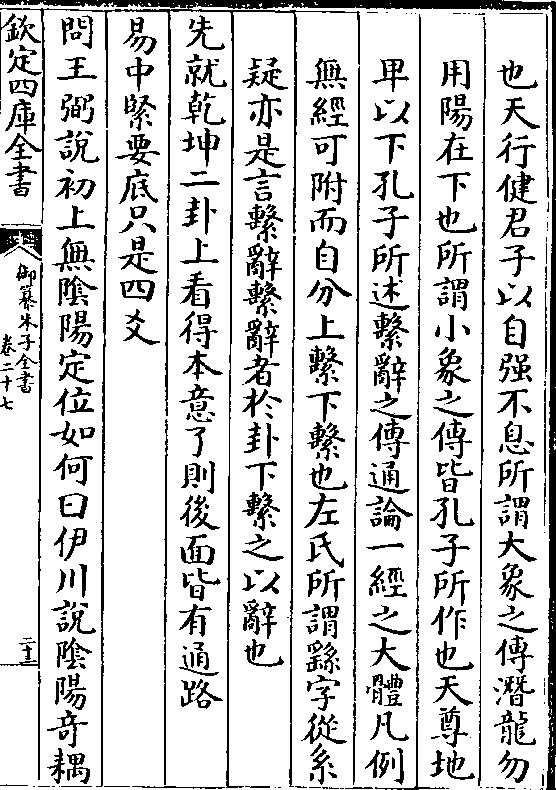 也天行健君子以自强不息所謂大象之傳潛龍勿
用陽在下也所謂小象之傳皆孔子所作也天尊地
卑以下孔子所述繫辭之傳通論一經之大體凡例
無經可附而自分上繫下繫也左氏所謂繇字從系
疑亦是言繫辭繫辭者於卦下繫之以辭也
先就乾坤二卦上看得本意了則後面皆有通路
易中緊要底只是四爻
問王弼說初上無陰陽定位如何曰伊川說陰陽奇耦
欽定四庫全書
御纂朱子全書
卷二十七
二十三